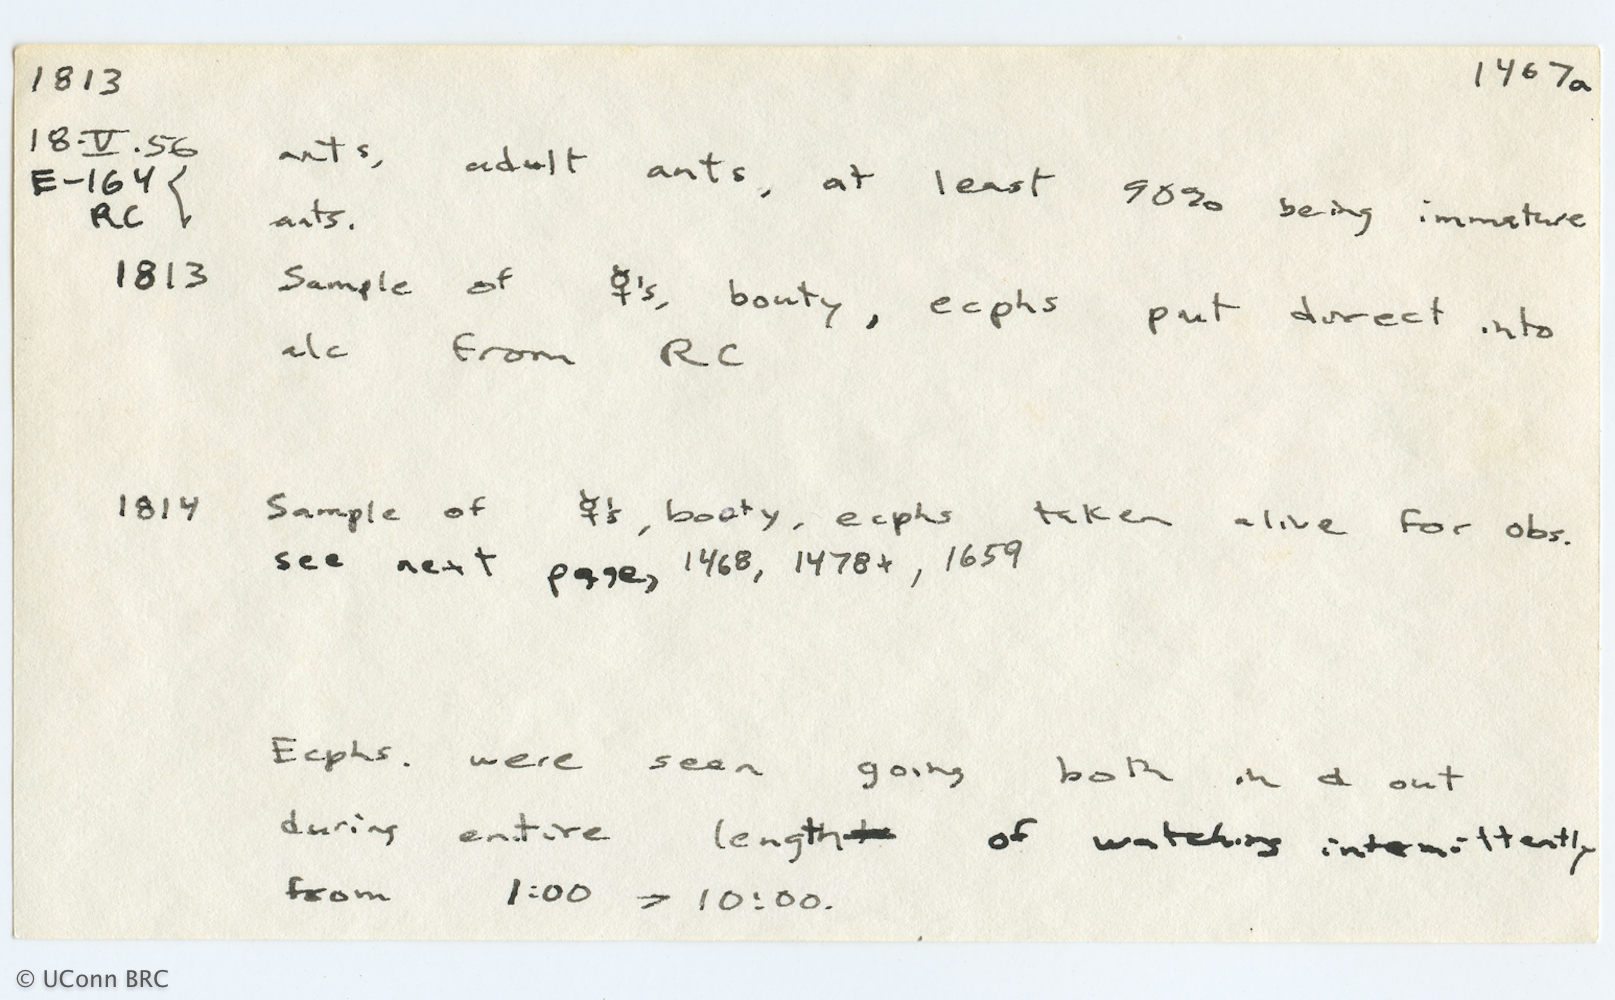 1813 1467a
18.V.56 ants, adult ants, at least 90% being immature
E-164 {
RC ants.
1813 Sample of ☿'s, booty, ecphs put direct into
alc from RC
1814 Sample of ☿'s, booty, ecphs taken alive for obs.
see next page, 1468, 1478+, 1659
Ecphs. were seen going both in & out
during entire length of watching intermittently
from 1:00 → 10:00.
© UConn BRC